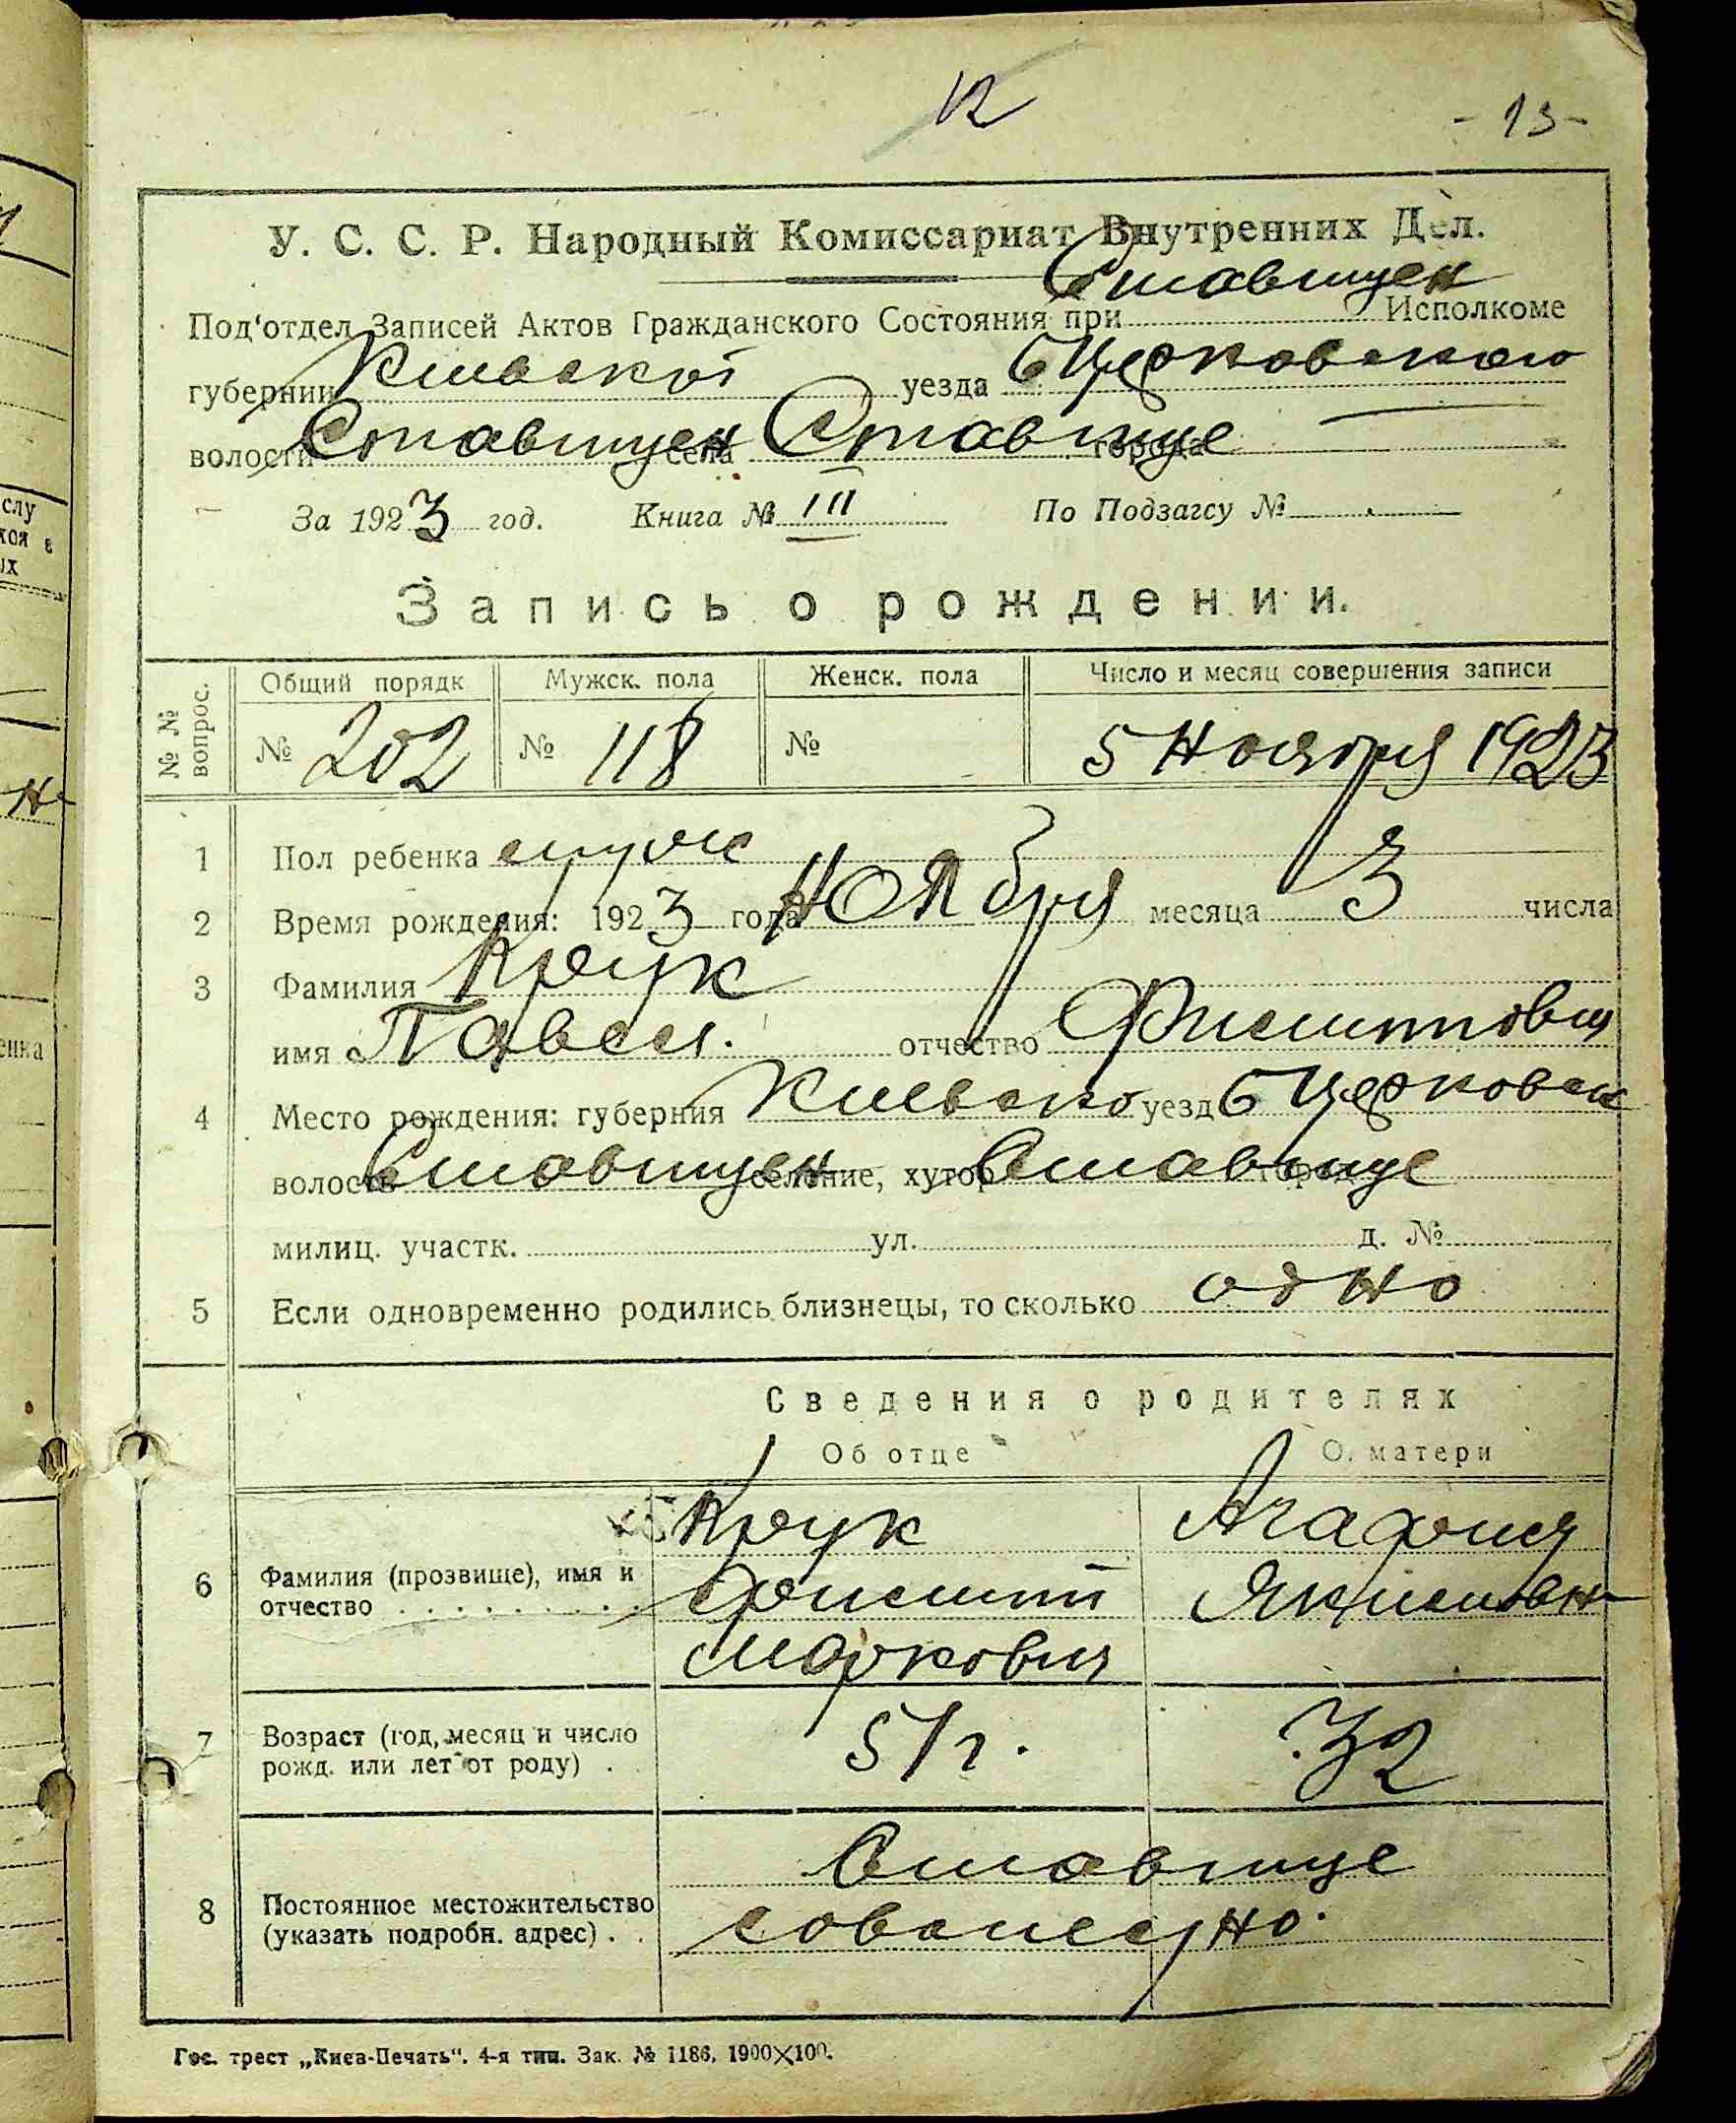 12
- 13 -
У. С. С. Р. Народный Комиссариат Внутренних Дел.
Под'отдел Записей Актов Гражданского Состояния при Ставищен Исполкоме
губернии Киевской уезда БЦерковского
волости Ставищен села Ставище города
За 1923 год. Книга № III По Подзагсу №
Запись о рождении.
№ № вопрос. Общий порядк Мужск. пола Женск. пола Число и месяц совершения записи
№ 202 № 118 № 5 Ноября 1923
1 Пол ребенка муж
2 Время рождения: 1923 года Ноября месяца 3 числа
3 Фамилия Крук
имя Павел. отчество Филиппович
4 Место рождения: губерния Киевско уезд БЦерковск
волость Ставищен селение, хутор Ставище город
милиц. участк. ул. д. №
5 Если одновременно родились близнецы, то сколько одно
Сведения о родителях
Об отце О матери
6 Фамилия (прозвище), имя и отчество Крук Агафия
Филипп Якимовн
Маркович
7 Возраст (год, месяц и число рожд. или лет от роду) . 51г. 32
8 Постоянное местожительство (указать подробн. адрес) . . Ставище
совместно.
Гос. трест „Киев-Печать". 4-я тип. Зак. № 1186. 1900×100.